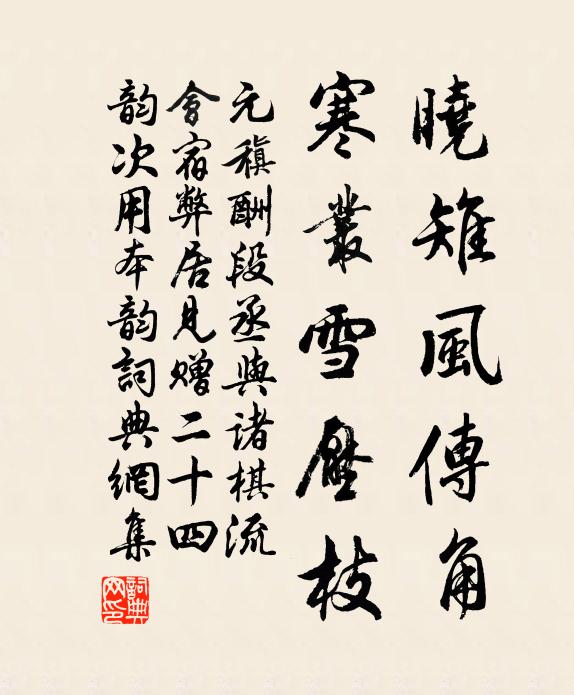 曉雉風傳角
寒叢雪壓枝
元稹酬段丞與諸棋流
會宿弊居見贈二十四
韵次用本韵詞典網集
詞典網印